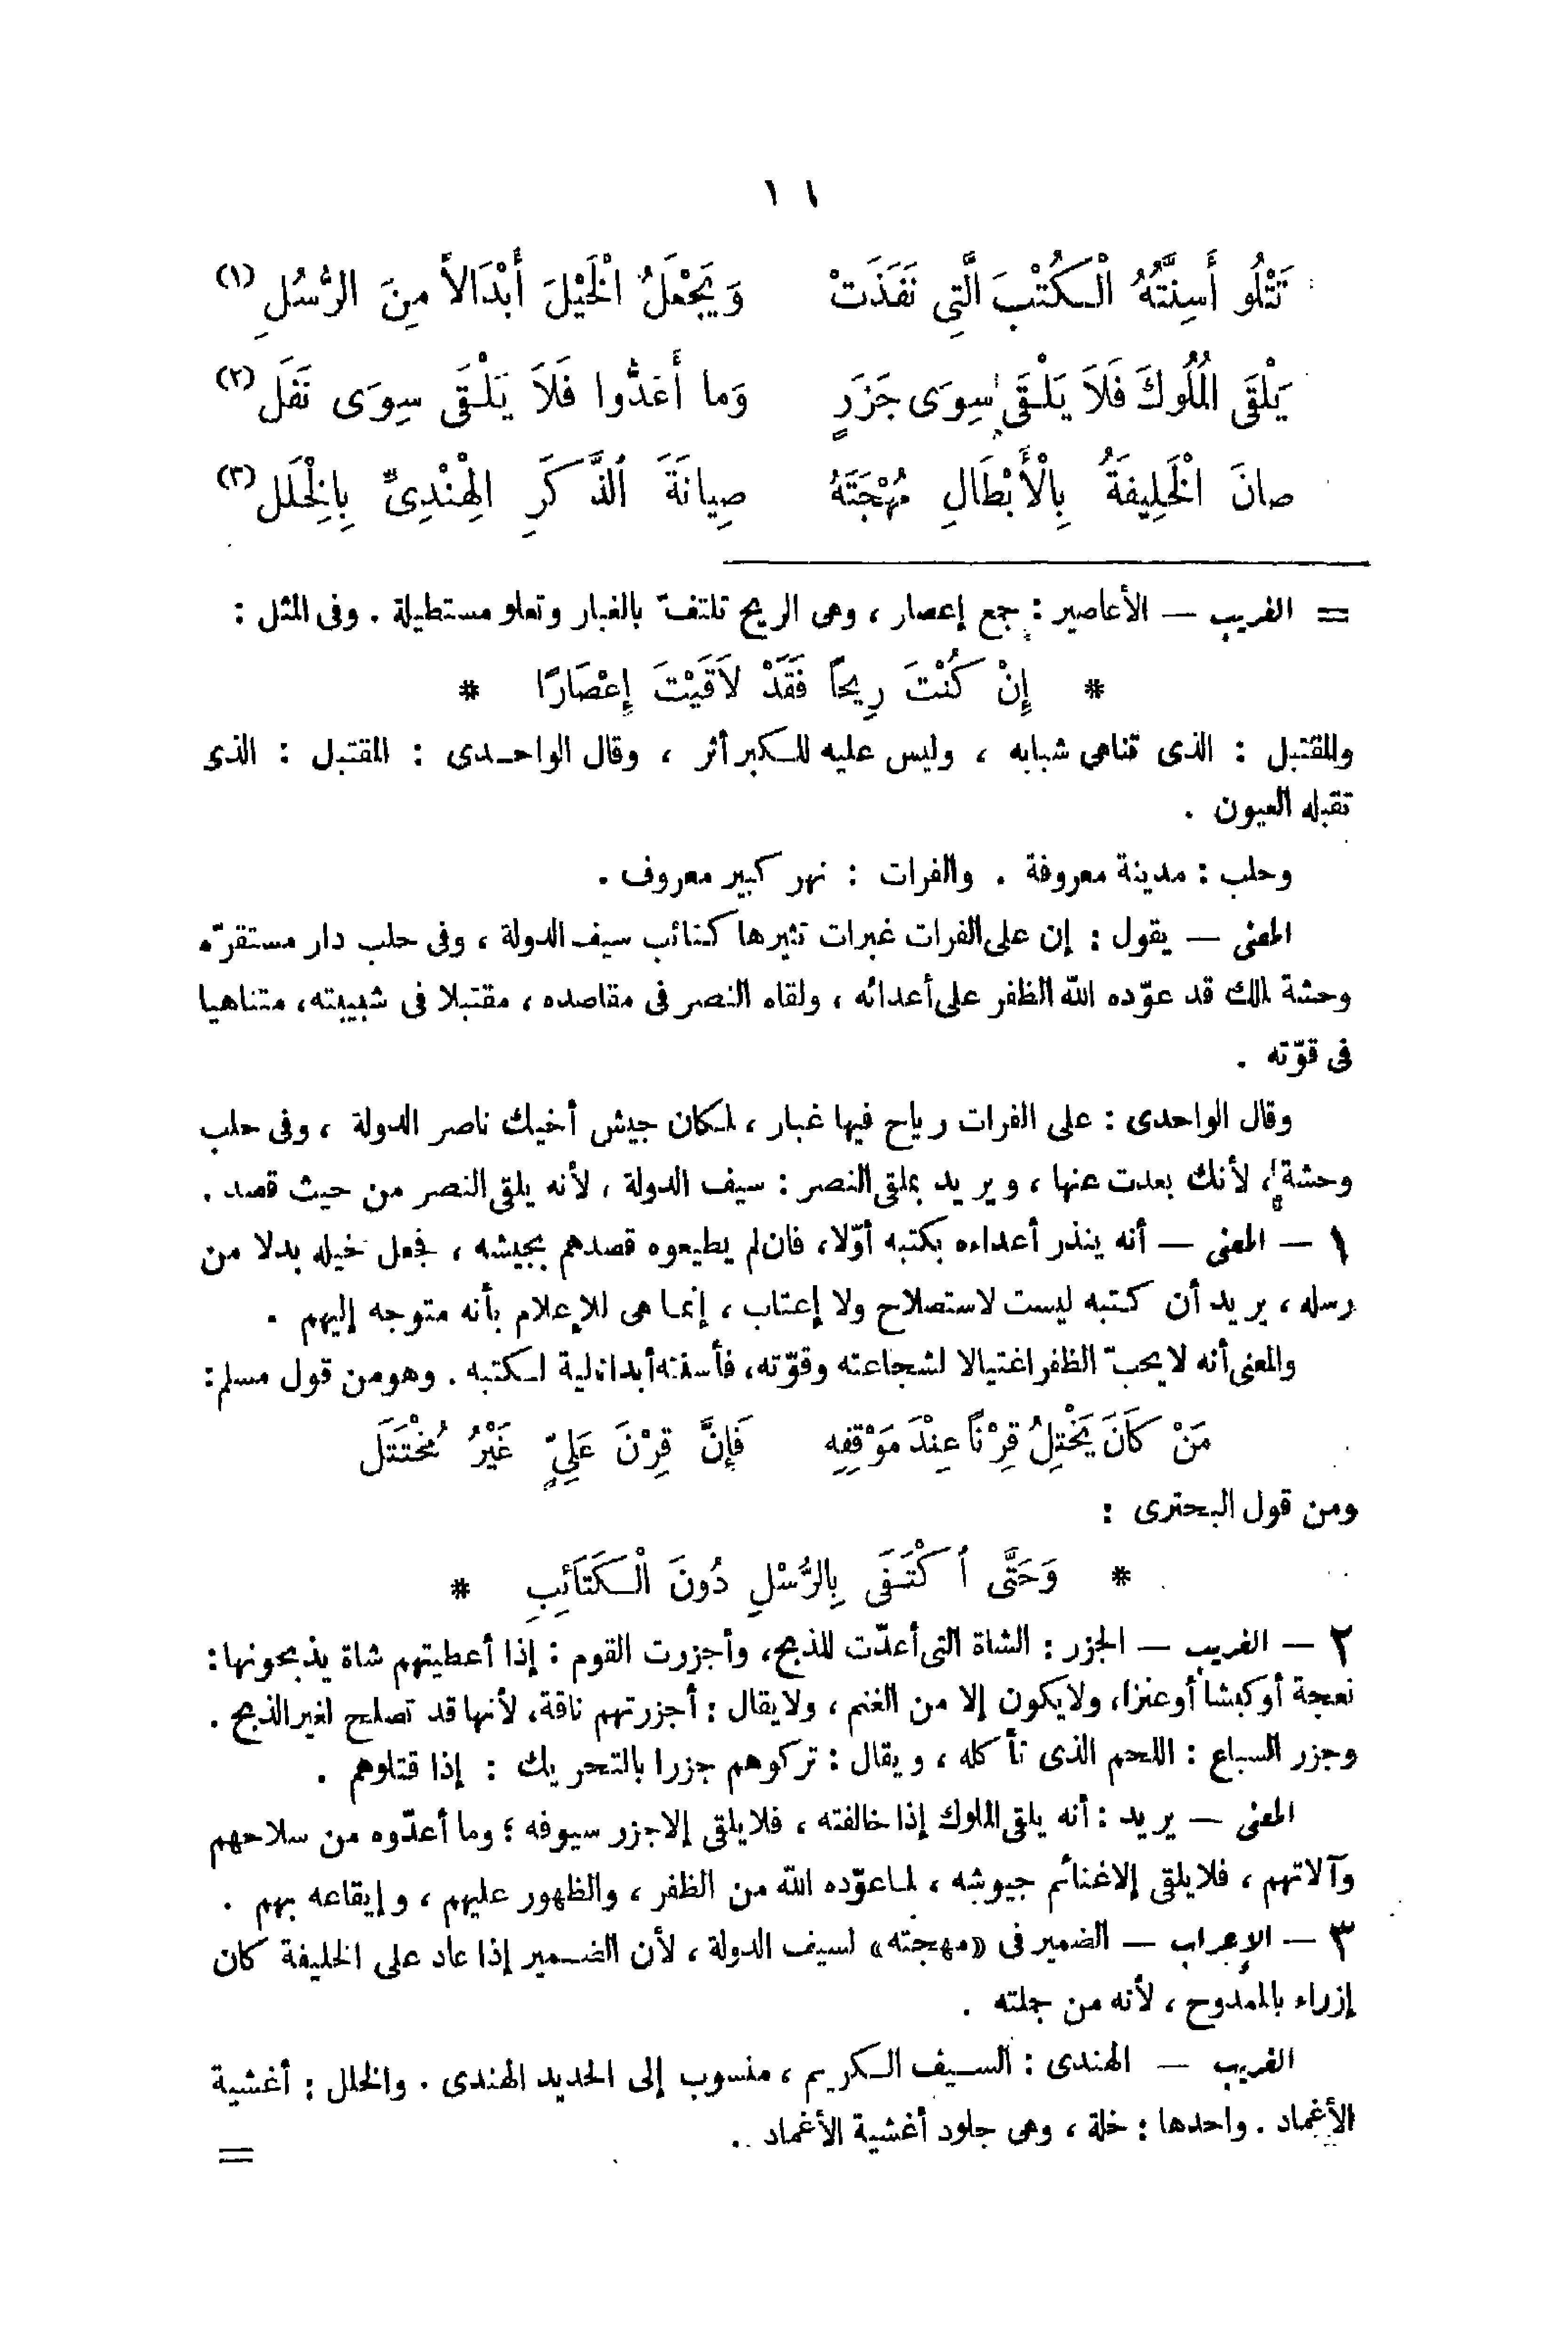 ١١
تَتْلُو أَسِنَّتُهُ الْكُتْبَ الَّتِى نَفَذَتْ وَيَجْعَلُ الْخَيْلَ أَبْدَالاً مِنَ الرُّسُلِ (١)
يَلْقَى الْمُلُوكَ فَلاَ يَلْقَى سِوَى جَزَرٍ وَما أَعَدُّوا فَلاَ يَلْقَى سِوَى نَفَلِ (٢)
صانَ الْخَلِيفَةُ بِالْأَبْطَالِ مُهْجَتَهُ صِيانَةَ الذَّكَرِ الْهِنْدِىِّ بِالْخِلَلِ (٣)
= الغريب — الأعاصير : جمع إعصار ، وهى الريح تلتفّ بالغبار وتعلو مستطيلة . وفى المثل :
* إِنْ كُنْتَ رِيحًا فَقَدْ لاَقَيْتَ إِعْصَارًا *
والمقتبل : الذى تناهى شبابه ، وليس عليه للكبر أثر ، وقال الواحدى : المقتبل : الذى
تقبله العيون .
وحلب : مدينة معروفة . والفرات : نهر كبير معروف .
المعنى — يقول : إن على الفرات غبرات تثيرها كتائب سيف الدولة ، وفى حلب دار مستقرّه
وحشة لملك قد عوّده الله الظفر على أعدائه ، ولقاه النصر فى مقاصده ، مقتبلا فى شبيبته ، متناهيا
فى قوّته .
وقال الواحدى : على الفرات رياح فيها غبار ، لمكان جيش أخيك ناصر الدولة ، وفى حلب
وحشة ، لأنك بعدت عنها ، ويريد بملقى النصر : سيف الدولة ، لأنه يلقى النصر من حيث قصد .
١ — المعنى — أنه ينذر أعداءه بكتبه أوّلا ، فان لم يطيعوه قصدهم بجيشه ، فجعل خيله بدلا من
رسله ، يريد أن كتبه ليست لاستصلاح ولا إعتاب ، إنما هى للإعلام بأنه متوجه إليهم .
والمعنى أنه لا يحبّ الظفر اغتيالا لشجاعته وقوّته ، فأسنته أبدا تالية لكتبه . وهو من قول مسلم :
مَنْ كَانَ يَخْتِلُ قِرْنًا عِنْدَ مَوْقِفِهِ فَإِنَّ قِرْنَ عَلِيٍّ غَيْرُ مُخْتَتَلِ
ومن قول البحترى :
* وَحَتَّى أكْتَفَى بِالرُّسْلِ دُونَ الْكَتَائِبِ *
٢ — الغريب — الجزر : الشاة التى أعدّت للذبح ، وأجزرت القوم : إذا أعطيتهم شاة يذبحونها :
نعجة أو كبشا أو عنزا ، ولا يكون إلا من الغنم ، ولا يقال : أجزرتهم ناقة ، لأنها قد تصلح لغير الذبح .
وجزر السباع : اللحم الذى تأكله ، ويقال : تركوهم جزرا بالتحريك : إذا قتلوهم .
المعنى — يريد : أنه يلقى الملوك إذا خالفته ، فلا يلقى إلا جزر سيوفه ؛ وما أعدّوه من سلاحهم
وآلاتهم ، فلا يلقى إلا غنائم جيوشه ، لما عوّده الله من الظفر ، والظهور عليهم ، وإيقاعه بهم .
٣ — الإعراب — الضمير فى «مهجته» لسيف الدولة ، لأن الضمير إذا عاد على الخليفة كان
إزراء بالممدوح ، لأنه من جملته .
الغريب — الهندى : السيف الكريم ، منسوب إلى الحديد الهندى . والخلل : أغشية
الأغماد . واحدها : خلة ، وهى جلود أغشية الأغماد .
=